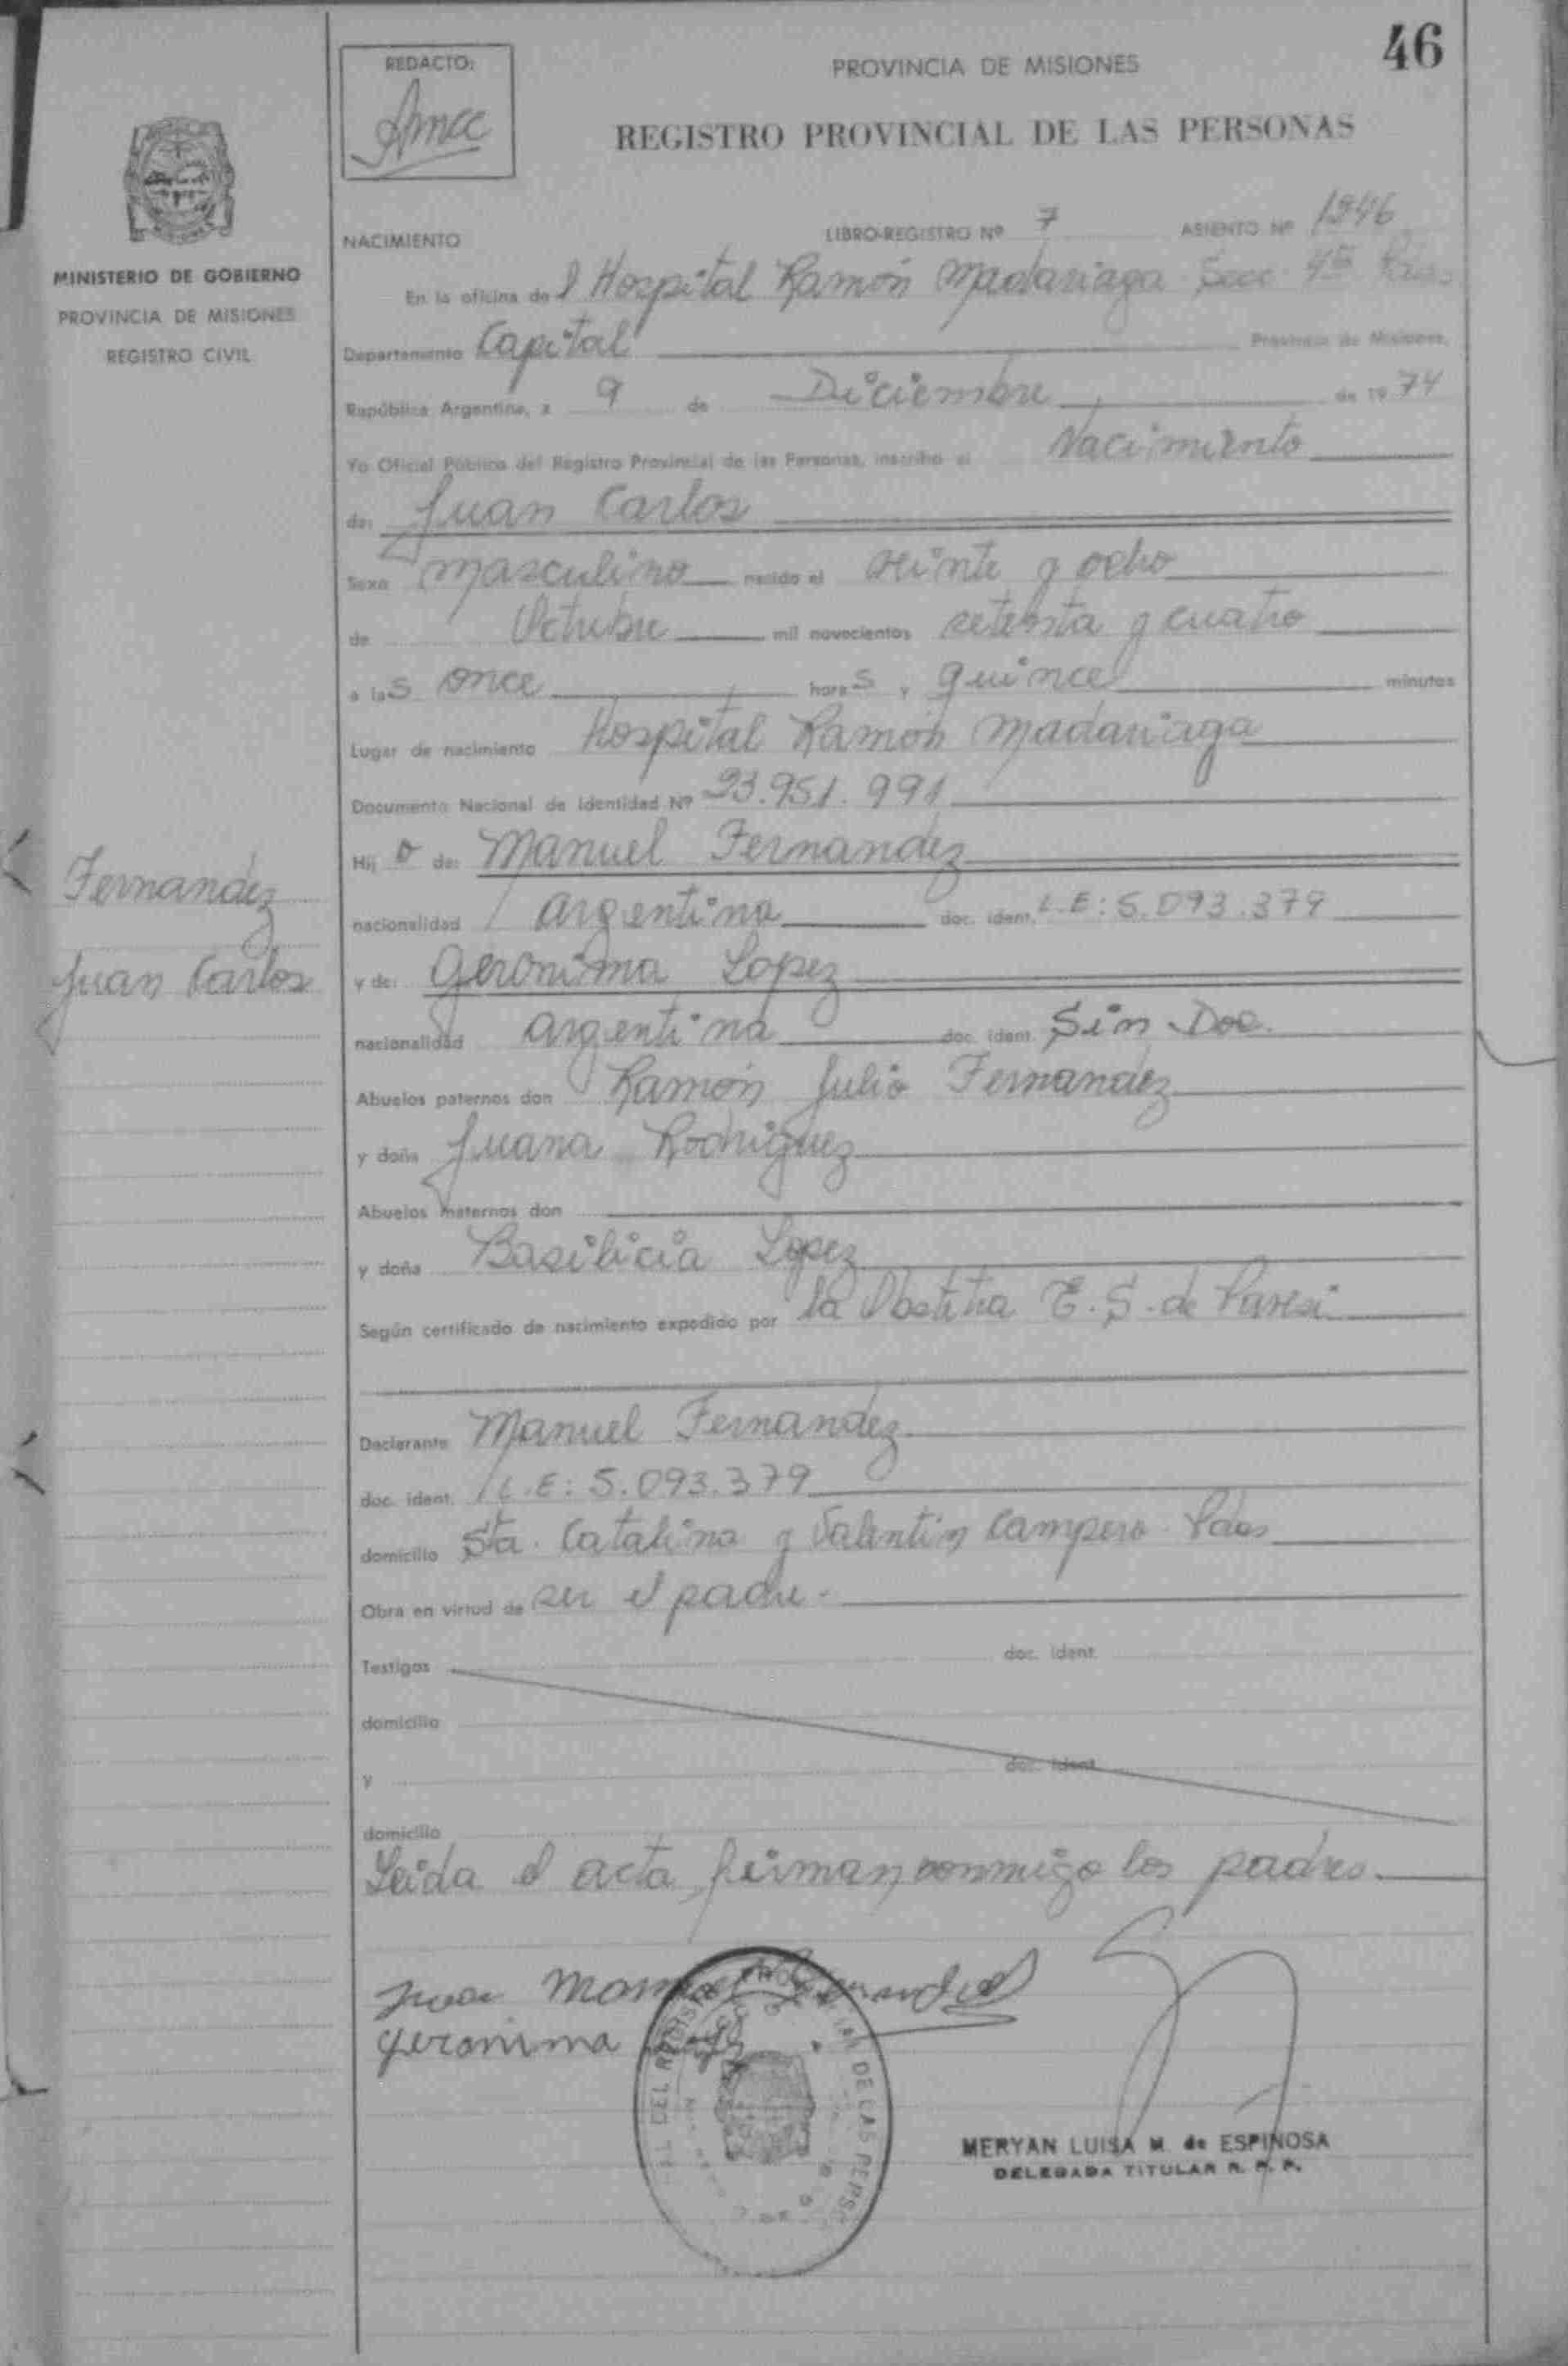 46
REDACTO:
PROVINCIA DE MISIONES
REGISTRO PROVINCIAL DE LAS PERSONAS
MINISTERIO DE GOBIERNO
PROVINCIA DE MISIONES
REGISTRO CIVIL
NACIMIENTO LIBRO-REGISTRO Nº 7 ASIENTO Nº 1246
En la oficina del Hospital Ramón Madariaga Secc. 4ta Pdas.
Departamento Capital Provincia de Misiones,
República Argentina, a 9 de Diciembre de 1974
Yo Oficial Público del Registro Provincial de las Personas, inscribo el Nacimiento
de: Juan Carlos
Sexo masculino nacido el veinte y ocho
de Octubre mil novecientos setenta y cuatro
a las once horas y quince minutos
Lugar de nacimiento Hospital Ramón Madariaga
Documento Nacional de Identidad Nº 23.951.991
Hijo de: Manuel Fernandez
Fernandez
Juan Carlos
nacionalidad argentina doc. ident. L.E: 5.093.379
y de: Geronima Lopez
nacionalidad argentina doc. ident. Sin Doc.
Abuelos paternos don Ramón Julio Fernandez
y doña Juana Rodriguez
Abuelos maternos don
y doña Basilicia Lopez
Según certificado de nacimiento expedido por la Obstetra E.S. de Paresi
Declarante Manuel Fernandez
doc. ident. L.E: 5.093.379
domicilio Sta. Catalina y Valentin Campero Pdas
Obra en virtud de ser el padre.
Testigos doc. ident.
domicilio
y doc. ident.
domicilio
Leida el acta, firman conmigo los padres.
Juan Manuel Fernandez
Geronima Lopez
MERYAN LUISA M. de ESPINOSA
DELEGADA TITULAR R. P. P.